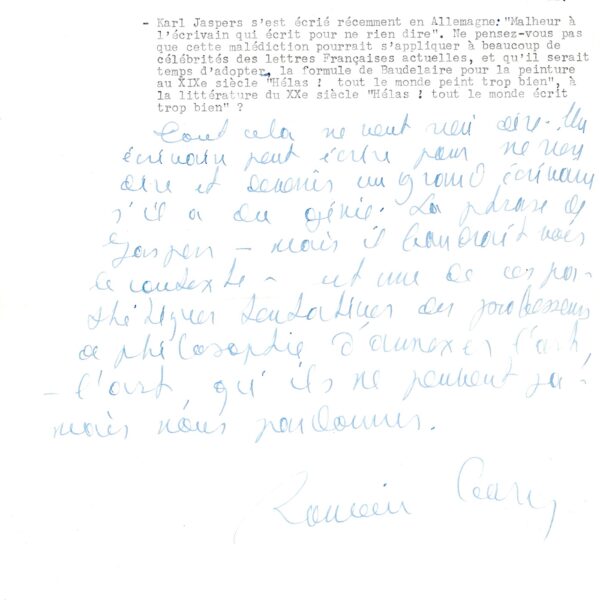 - Karl Jaspers s'est écrié récemment en Allemagne: "Malheur à
l'écrivain qui écrit pour ne rien dire". Ne pensez-vous pas
que cette malédiction pourrait s'appliquer à beaucoup de
célébrités des lettres Françaises actuelles, et qu'il serait
temps d'adopter, la formule de Baudelaire pour la peinture
au XIXe siècle "Hélas ! tout le monde peint trop bien", à
la littérature du XXe siècle "Hélas ! tout le monde écrit
trop bien" ?
Tout cela ne veut rien dire. Un
écrivain peut écrire pour ne rien
dire et devenir un grand écrivain
s'il a du génie. La phrase de
Jaspers - mais il faudrait voir
le contexte - est une de ces pa-
thétiques tentatives des professeurs
de philosophie d'annexer l'art,
- l'art, qu'ils ne peuvent ja-
mais nous pardonner.
Romain Gary